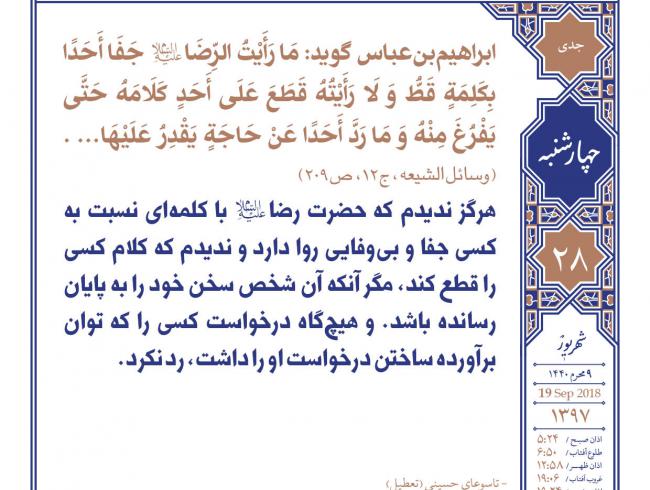 ابراهیم‌بن‌عباس گوید: مَا رَأَیْتُ الرِّضَا علیه‌السلام جَفَا أَحَدًا
بِکَلِمَةٍ قَطُّ وَ لَا رَأَیْتُهُ قَطَعَ عَلَی أَحَدٍ کَلَامَهُ حَتَّی
یَفْرُغَ مِنْهُ وَ مَا رَدَّ أَحَدًا عَنْ حَاجَةٍ یَقْدِرُ عَلَیْهَا... .
(وسائل الشیعه، ج۱۲، ص۲۰۹)
هرگز ندیدم که حضرت رضا علیه‌السلام با کلمه‌ای نسبت به
کسی جفا و بی‌وفایی روا دارد و ندیدم که کلام کسی
را قطع کند، مگر آنکه آن شخص سخن خود را به پایان
رسانده باشد. و هیچ‌گاه درخواست کسی را که توان
برآورده ساختن درخواست او را داشت، رد نکرد.
- تاسوعای حسینی (تعطیل)
جدی
چهارشنبه
۲۸
شهریور
۹ محرم ۱۴۴۰
19 Sep 2018
۱۳۹۷
اذان صبح / ۵:۲۴
طلوع آفتاب / ۶:۵۰
اذان ظهر / ۱۲:۵۸
غروب آفتاب / ۱۹:۰۶